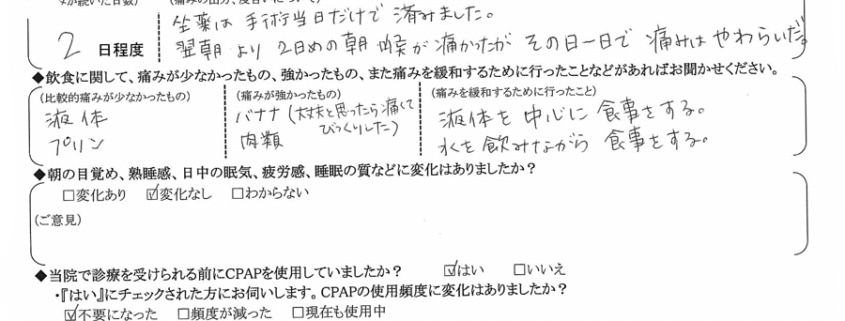 坐薬は 手術当日だけで 済みました。
2 日程度
翌朝より 2日めの朝 喉が痛かったが その日一日で 痛みはやわらいだ。
◆飲食に関して、痛みが少なかったもの、強かったもの、また痛みを緩和するために行ったことなどがあればお聞かせください。
(比較的痛みが少なかったもの)
液体
プリン
(痛みが強かったもの)
バナナ(大丈夫と思ったら痛くて
びっくりした)
肉類
(痛みを緩和するために行ったこと)
液体を中心に食事をする。
水を飲みながら 食事をする。
◆朝の目覚め、熟睡感、日中の眠気、疲労感、睡眠の質などに変化はありましたか?
□変化あり ☑変化なし □わからない
(ご意見)
◆当院で診療を受けられる前にCPAPを使用していましたか? ☑はい □いいえ
・『はい』にチェックされた方にお伺いします。CPAPの使用頻度に変化はありましたか?
☑不要になった □頻度が減った □現在も使用中